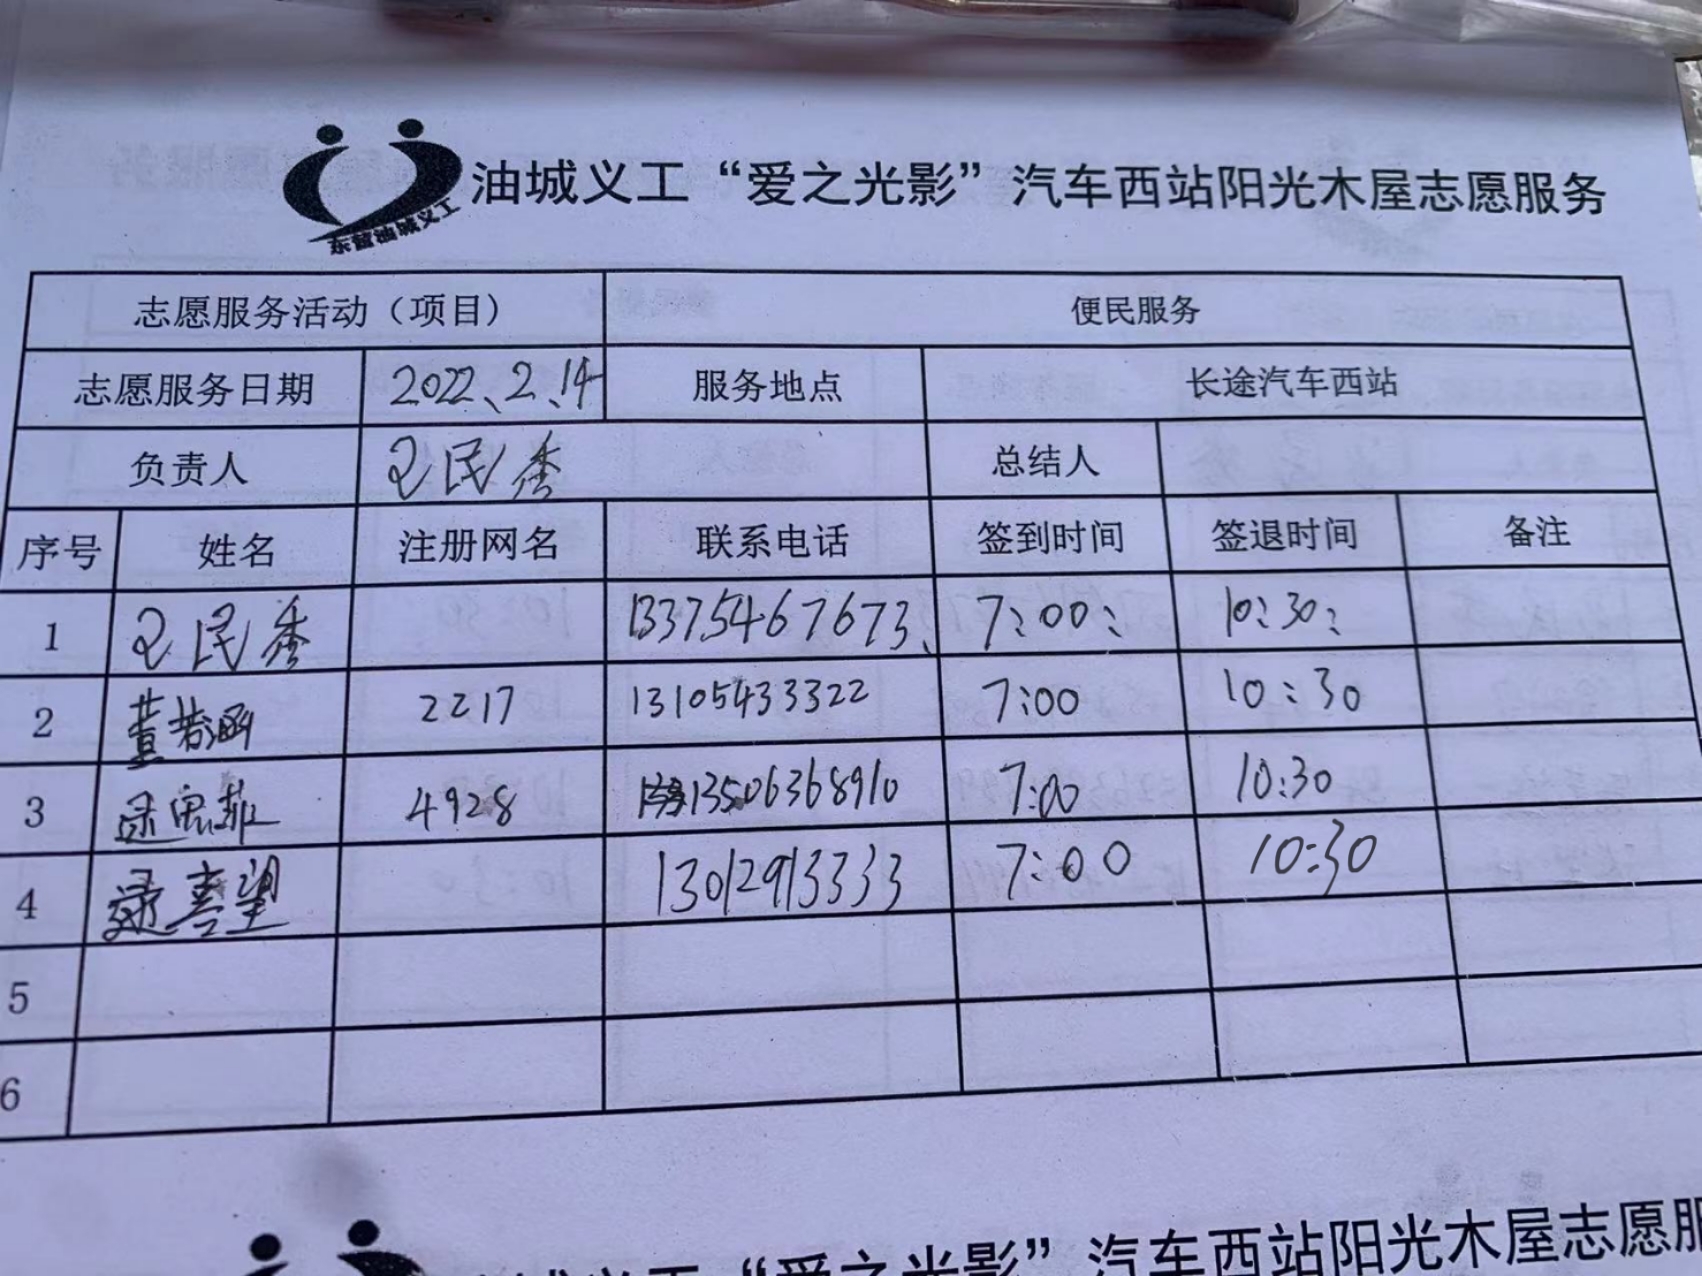 油城义工“爱之光影”汽车西站阳光木屋志愿服务
东营油城义工
志愿服务活动（项目） 便民服务
志愿服务日期 2022、2、14 服务地点 长途汽车西站
负责人 民秀 总结人
序号 姓名 注册网名 联系电话 签到时间 签退时间 备注
1 民秀 13375467673、 7:00: 10:30:
2 董若涵 2217 13105433322 7:00 10:30
3 思菲 4928 13506368910 7:00 10:30
4 喜望 13012913333 7:00 10:30
5
6
油城义工“爱之光影”汽车西站阳光木屋志愿服